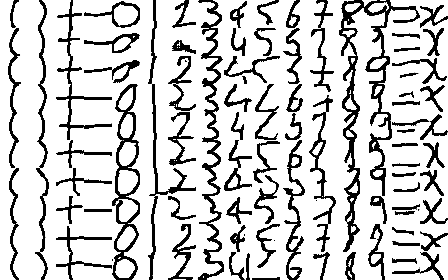 ( ) + - 0 1 2 3 4 5 6 7 8 9 = x
( ) + - 0 1 2 3 4 5 6 7 8 9 = x
( ) + - 0 1 2 3 4 5 3 7 8 9 = x
( ) + - 0 1 2 3 4 5 6 7 8 9 = x
( ) + - 0 1 2 3 4 5 5 7 8 9 = x
( ) + - 0 1 2 3 4 5 6 7 8 9 = x
( ) + - 0 1 2 3 4 5 5 7 8 9 = x
( ) + - 0 1 2 3 4 5 5 7 8 9 = x
( ) + - 0 1 2 3 4 5 6 7 8 9 = x
( ) + - 0 1 2 5 4 5 6 7 8 9 = x